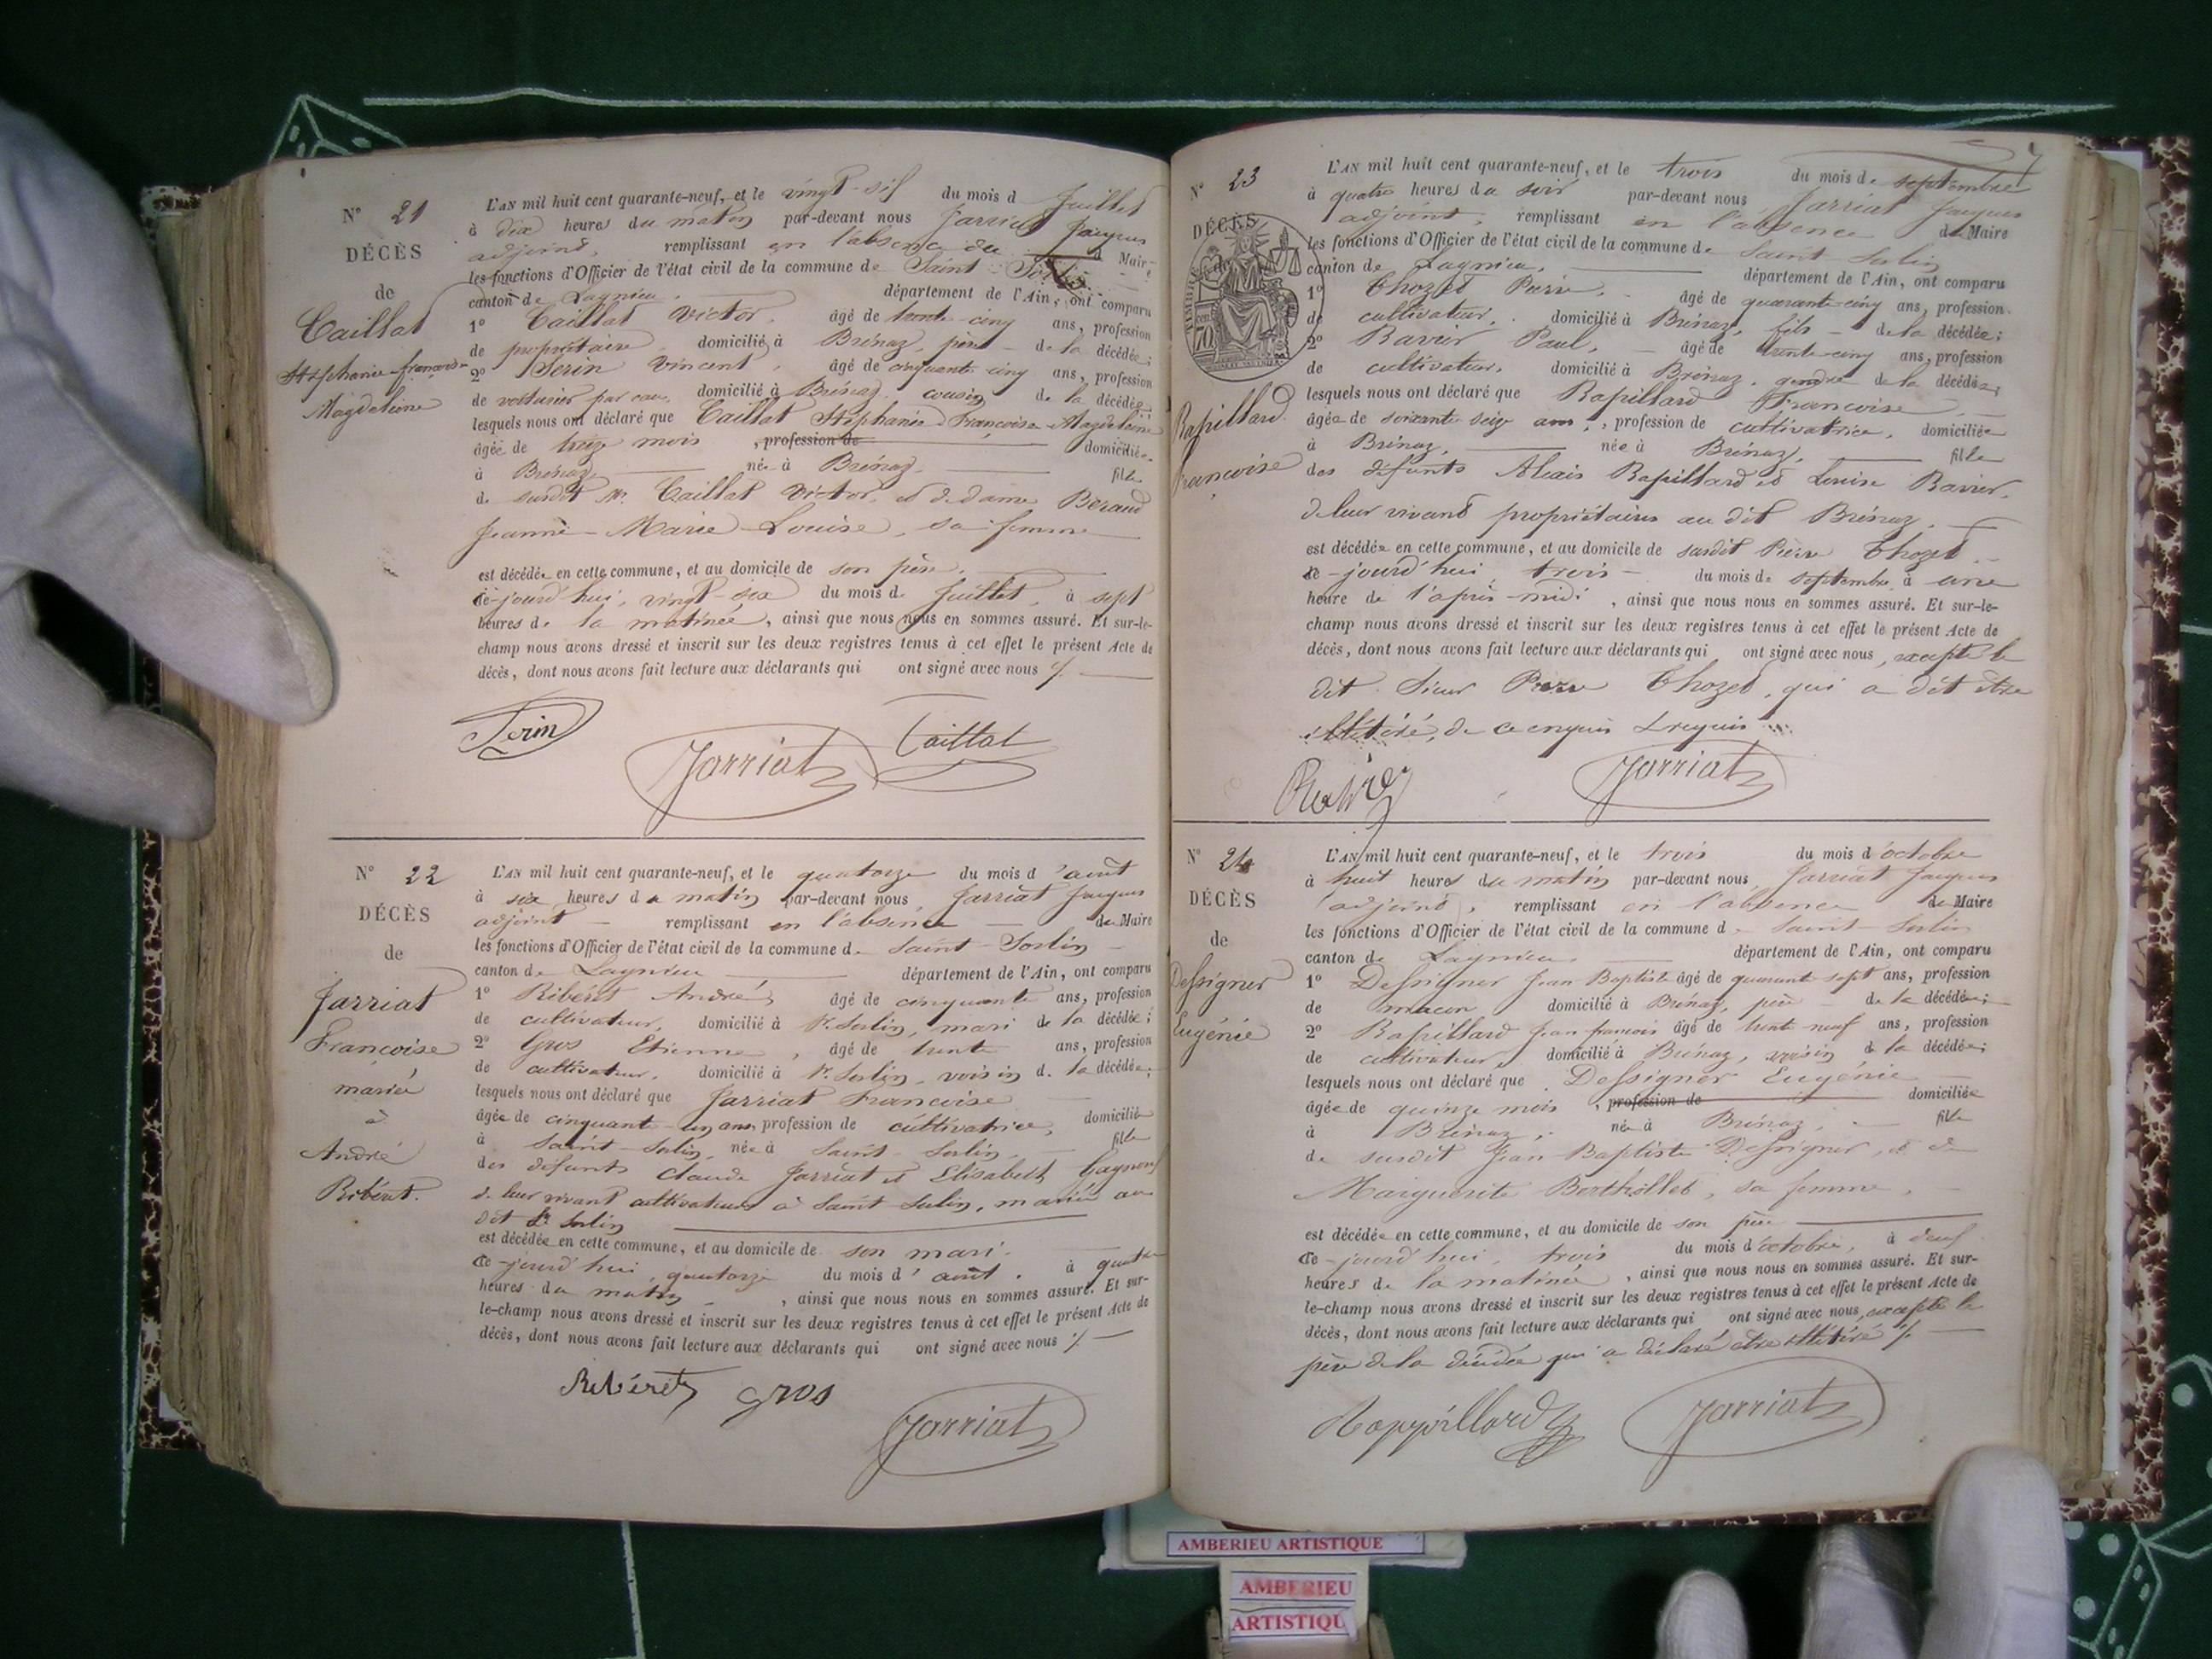 N° 21
DÉCÈS
de
Caillat
Stéphanie-françoise
Magdeleine
L'AN mil huit cent quarante-neuf, et le vingt-six du mois d Juillet
à dix heures du matin par-devant nous Jarriat Jacques
adjoint, remplissant en l'absence du Maire
les fonctions d'Officier de l'état civil de la commune de Saint-Sorlin
canton de Lagnieu. département de l'Ain, ont comparu
1° Caillat Victor, âgé de trente-cinq ans, profession
de propriétaire, domicilié à Brénaz, père de la décédée;
2° Serin Vincent, âgé de cinquante-cinq ans, profession
de voiturier par eau, domicilié à Brénaz, cousin de la décédée;
lesquels nous ont déclaré que Caillat Stéphanie Françoise-Magdeleine
âgée de treize mois, profession de domiciliée
à Brénaz, née à Brénaz, fille
de susdit Mr. Caillat Victor, et de dame Beraud
Jeanne-Marie-Louise, sa femme
est décédée en cette commune, et au domicile de son père,
ce-jourd'hui, vingt-six du mois de Juillet, à sept
heures de la matinée, ainsi que nous nous en sommes assuré. Et sur-le-
champ nous avons dressé et inscrit sur les deux registres tenus à cet effet le présent Acte de
décès, dont nous avons fait lecture aux déclarants qui ont signé avec nous
Serin Jarriat Caillat
N° 22
DÉCÈS
de
Jarriat
Françoise
mariée
à
André
Ribéret.
L'AN mil huit cent quarante-neuf, et le quatorze du mois d'août
à six heures du matin par-devant nous, Jarriat Jacques
adjoint remplissant en l'absence du Maire
les fonctions d'Officier de l'état civil de la commune de Saint-Sorlin
canton de Lagnieu département de l'Ain, ont comparu
1° Ribéret André, âgé de cinquante ans, profession
de cultivateur, domicilié à St. Sorlin, mari de la décédée;
2° Gros Etienne, âgé de trente ans, profession
de cultivateur, domicilié à St. Sorlin, voisin de la décédée;
lesquels nous ont déclaré que Jarriat Françoise
âgée de cinquante-un ans, profession de cultivatrice, domiciliée
à Saint-Sorlin, née à Saint-Sorlin, fille
des défunts Claude Jarriat et Elisabeth
de leur vivant cultivateurs à Saint Sorlin, mariée au
dit St Sorlin
est décédée en cette commune, et au domicile de son mari.
ce-jourd'hui, quatorze du mois d'août, à quatre
heures du matin, ainsi que nous nous en sommes assuré. Et sur-
le-champ nous avons dressé et inscrit sur les deux registres tenus à cet effet le présent Acte de
décès, dont nous avons fait lecture aux déclarants qui ont signé avec nous
Ribéret gros
Jarriat
N° 23
DÉCÈS
Rapillard
françoise
L'AN mil huit cent quarante-neuf, et le trois du mois de septembre
à quatre heures du soir par-devant nous Jarriat Jacques
adjoint, remplissant en l'absence du Maire
les fonctions d'Officier de l'état civil de la commune de Saint-Sorlin
canton de Lagnieu, département de l'Ain, ont comparu
1° Chozet Pierre, âgé de quarante-cinq ans, profession
de cultivateur, domicilié à Brénaz, fils de la décédée;
2° Ravier Paul, âgé de trente-cinq ans, profession
de cultivateur, domicilié à Brénaz, gendre de la décédée;
lesquels nous ont déclaré que Rapillard Françoise
âgée de soixante-seize ans, profession de cultivatrice, domiciliée
à Brénaz, née à Brénaz, fille
des défunts Rapillard et Louise Ravier,
de leur vivant propriétaires au dit Brénaz.
est décédée en cette commune, et au domicile de susdit Pierre Chozet
ce-jourd'hui, trois du mois de septembre à une
heure de l'après-midi, ainsi que nous nous en sommes assuré. Et sur-le-
champ nous avons dressé et inscrit sur les deux registres tenus à cet effet le présent Acte de
décès, dont nous avons fait lecture aux déclarants qui ont signé avec nous, excepté le
dit Sieur Pierre Chozet, qui a dit être
illétéré, de ce enquis & requis
Jarriat
N° 24
DÉCÈS
de
Dessigner
Eugénie
L'AN mil huit cent quarante-neuf, et le trois du mois d'octobre
à huit heures du matin par-devant nous, Jarriat Jacques
adjoint, remplissant en l'absence du Maire
les fonctions d'Officier de l'état civil de la commune de Saint-Sorlin
canton de Lagnieu département de l'Ain, ont comparu
1° Dessigner Jean Baptiste âgé de quarante sept ans, profession
de macon, domicilié à Brénaz, père de la décédée;
2° Rapillard Jean-francois âgé de trente-neuf ans, profession
de cultivateur, domicilié à Brénaz, voisin de la décédée;
lesquels nous ont déclaré que Dessigner Eugénie
âgée de quinze mois, profession de domiciliée
à Brénaz, née à Brénaz, fille
de susdit Jean-Baptiste Dessigner, et de
Marguerite Berthollet, sa femme,
est décédée en cette commune, et au domicile de son père
ce-jourd'hui, trois du mois d'octobre, à deux
heures de la matinée, ainsi que nous nous en sommes assuré. Et sur-
le-champ nous avons dressé et inscrit sur les deux registres tenus à cet effet le présent Acte de
décès, dont nous avons fait lecture aux déclarants qui ont signé avec nous, excepté le
père de la décédée qui a déclaré être illétéré
Rappillard Jarriat
AMBERIEU ARTISTIQUE
AMBERIEU
ARTISTIQU